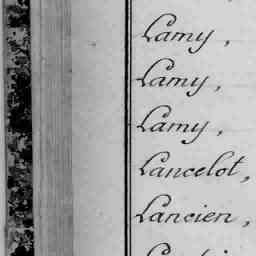 Lamy,
Lamy,
Lamy,
Lancelot,
Lancien,